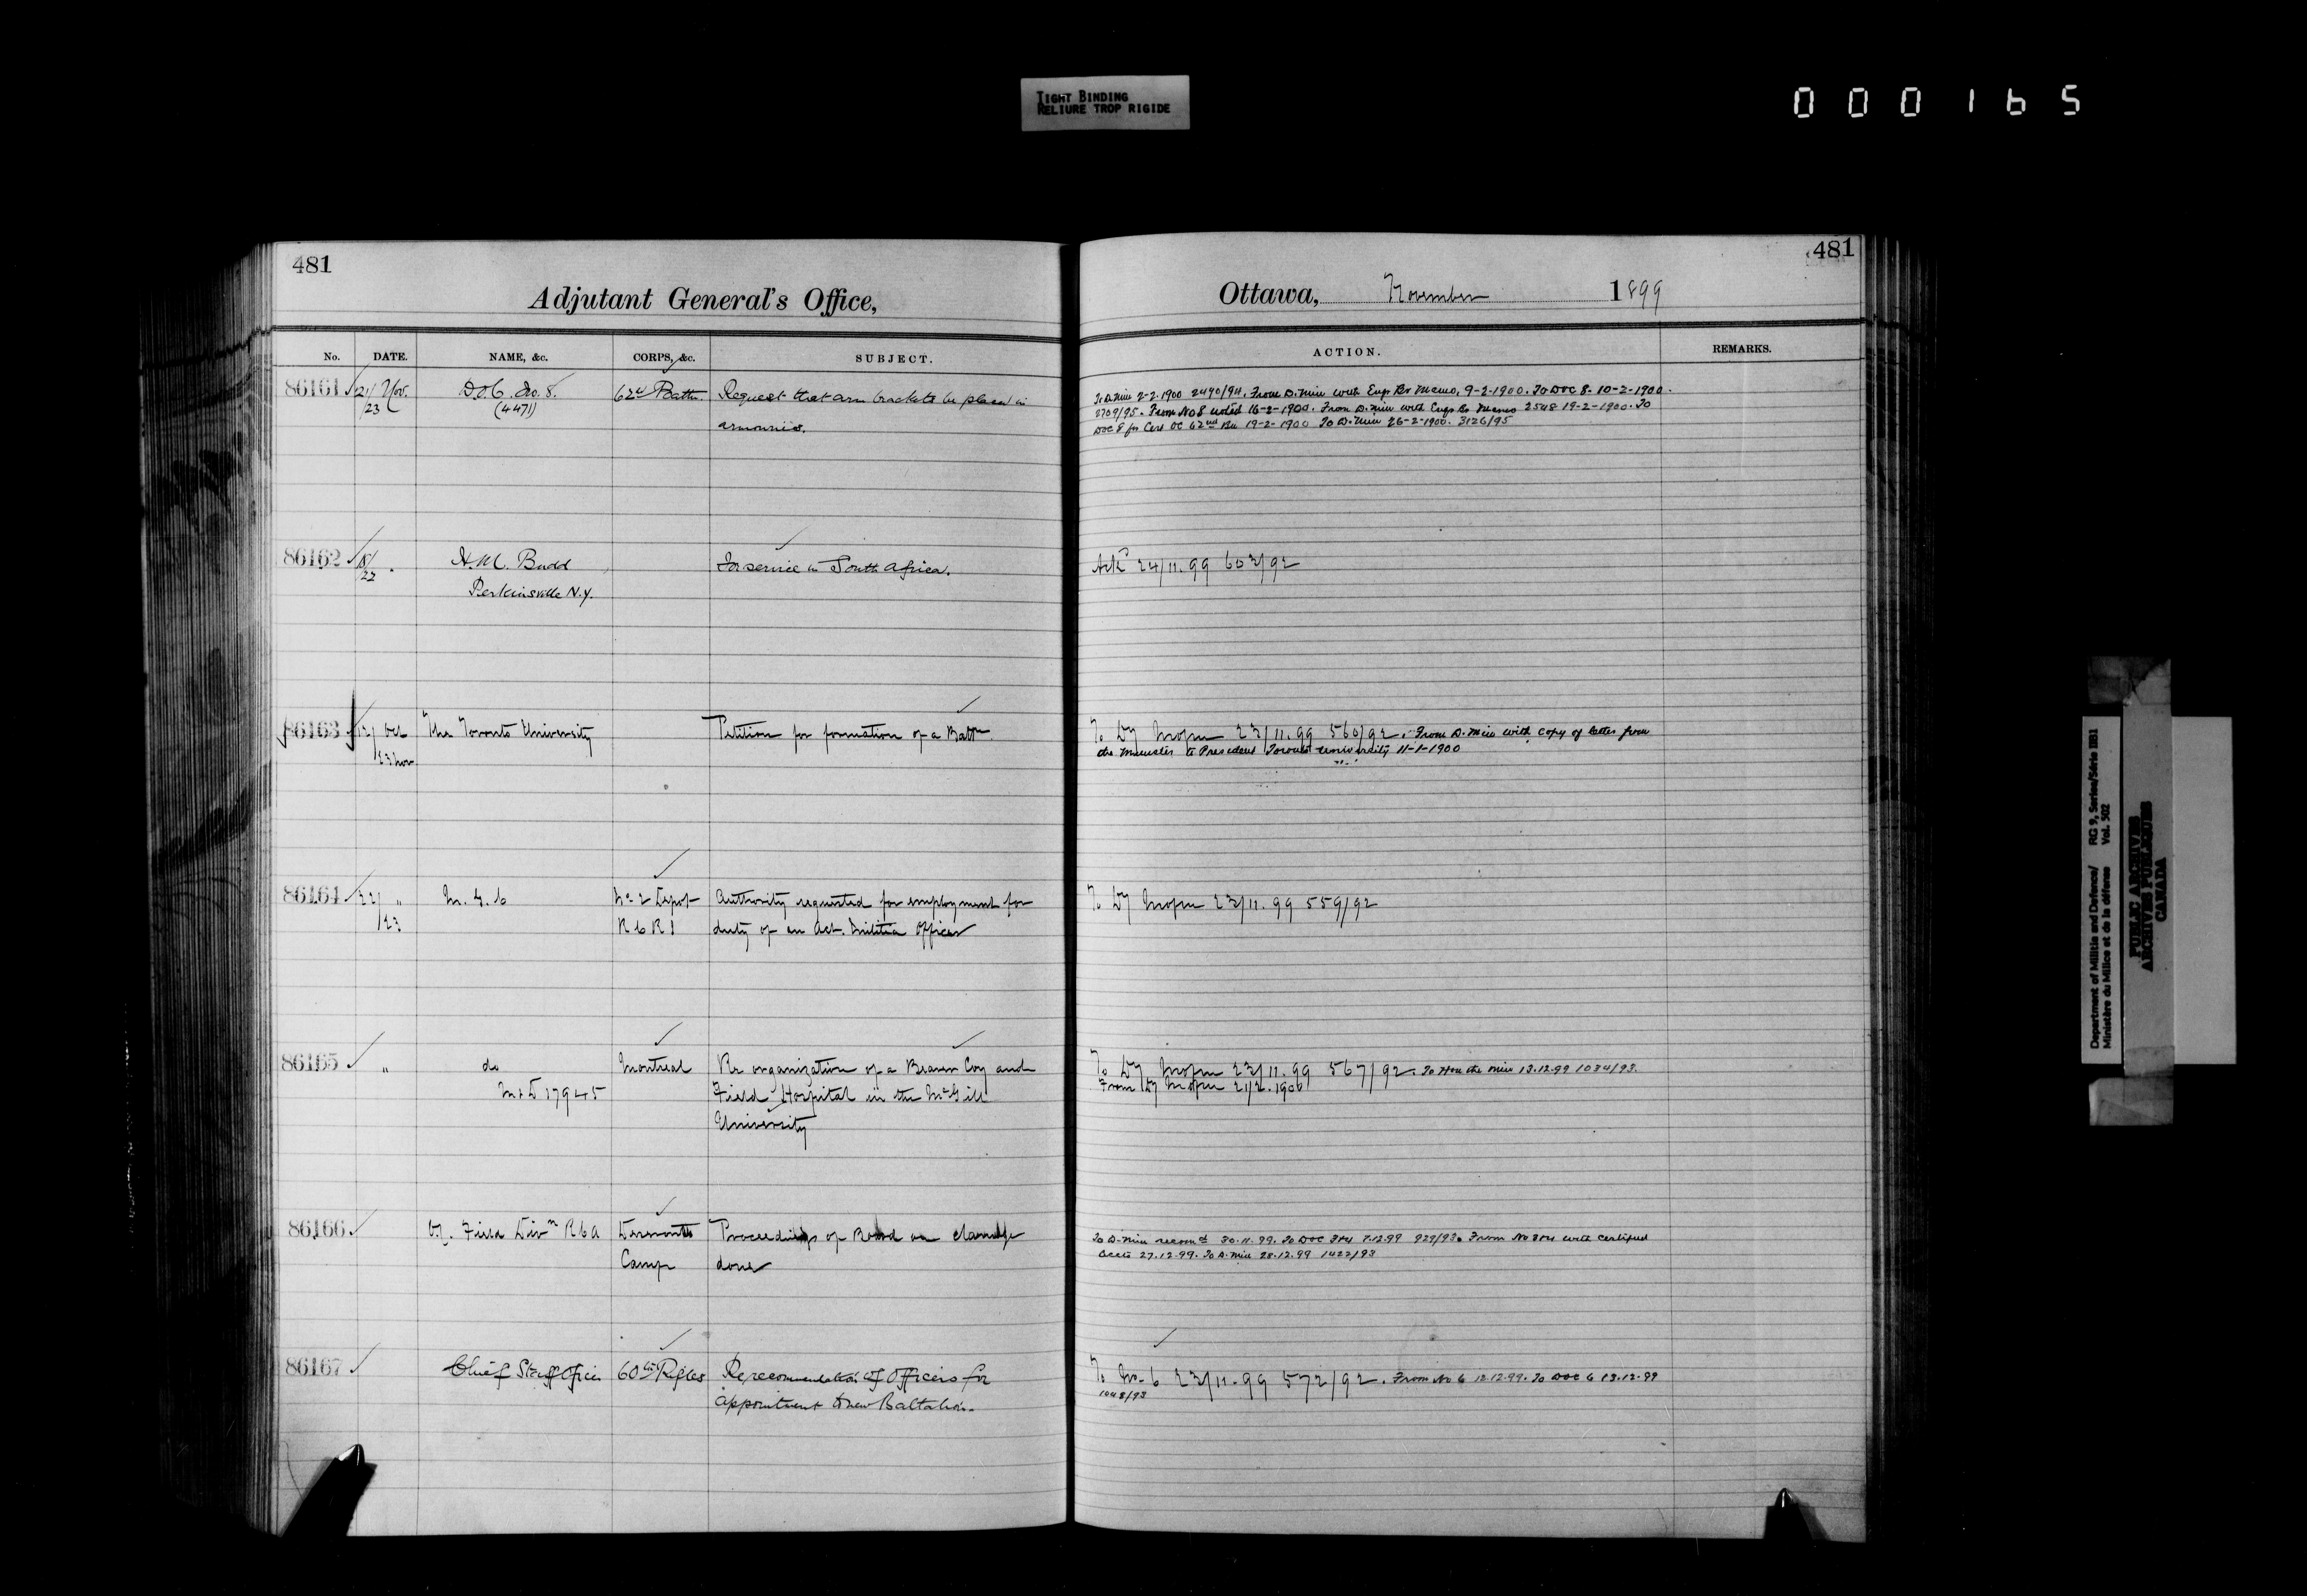 TIGHT BINDING
RELIURE TROP RIGIDE
000165
481
Adjutant General's Office,
No. DATE. NAME, &c. CORPS, &c. SUBJECT.
86161 21/23 Nov. D.O.C. No. 8. 62nd Battn. Request that arm brackets be placed in
(4471) armouries.
86162 18/22 " H.M. Budd For service in South Africa.
Perkinsville N.Y.
86163 12/ Oct The Toronto University Petition for formation of a Battn.
23 Nov
86164 22/23 " M.G.C No 2 Depot Authority requested for employment for
R C R I duty of an Act. Militia Officer
86165 " do Montreal Re organization of a Bearer Coy and
M & D 17945 Field Hospital in the McGill
University
86166 Field Divn R C A Deseronto Proceedings of Board on damage
Camp done
86167 Chief Staff Officer 60th Rifles Re recommendation of Officers for
appointment to new Battalion.
481
Ottawa, November 1899
ACTION. REMARKS.
To D. Min 2-2-1900 2490/94. From D. Min with Engr Br Memo, 9-2-1900. To DOC 8. 10-2-1900.
2709/95. From No 8 noted 16-2-1900. From D. Min with Engr Br Memo 2548 19-2-1900. To
DOC 8 for Cert OC 62nd Bn 19-2-1900 To D. Min 26-2-1900. 3126/95
Ack 24/11.99 603/92
To 23/11.99 560/92. From D. Min with copy of letter from
the Minister to President Toronto University 11-1-1900
To 23/11.99 559/92
To 23/11.99 567/92. To Hon the Min 13.12.99 1034/93.
From 21/2.1900
To D. Min recomd 30.11.99. To DOC 3&4 7.12.99 929/93. From No 3&4 with certified
accts 27.12.99. To D. Min 28.12.99 1422/93
To No 6 23/11.99 572/92. From No 6 12.12.99. To DOC 6 13.12.99
1048/93
Department of Militia and Defence/ RG 9, Series/Série IIB1
Ministère du Milice et de la défense Vol. 502
PUBLIC ARCHIVES
ARCHIVES PUBLIQUES
CANADA